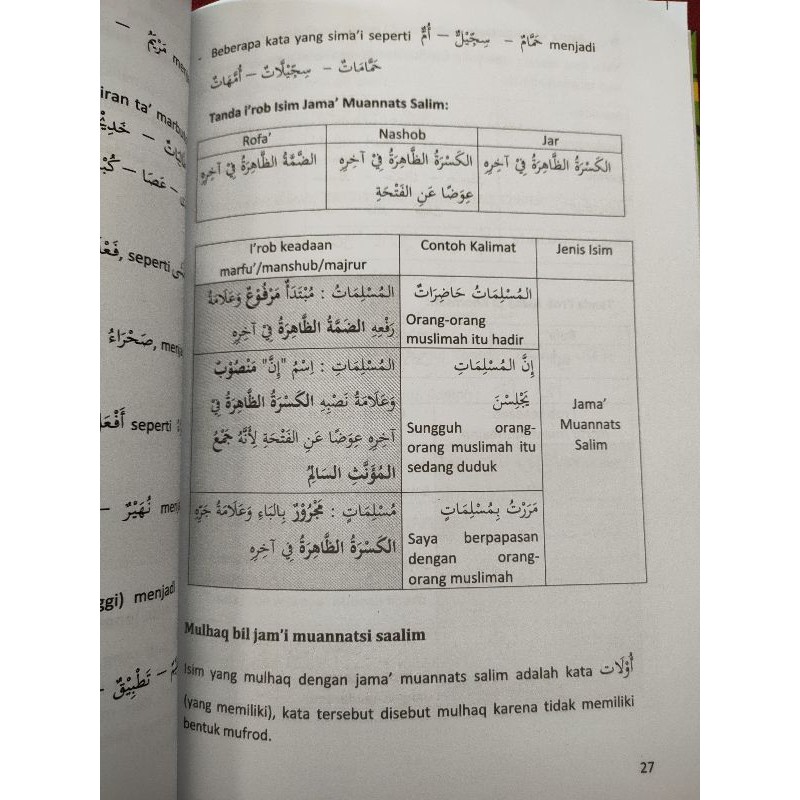 مَرْيَمُ
iran ta'
خَدِيْ
عَصَا –
seperti
صَحْرَاءُ
seperti
نُهَيْرٌ
ggi) menjadi
تَطْبِيْقٌ –
- Beberapa kata yang sima'i seperti حَمَّامٌ – سِجِيْلٌ – أُمٌّ menjadi
حَمَّامَاتٌ – سِجِيْلَّاتٌ – أُمَّهَاتٌ
Tanda I'rob Isim Jama' Muannats Salim:
Rofa' Nashob Jar
الضَّمَّةُ الظَّاهِرَةُ فِيْ آخِرِهِ الكَسْرَةُ الظَّاهِرَةُ فِيْ آخِرِهِ الكَسْرَةُ الظَّاهِرَةُ فِيْ آخِرِهِ
عِوَضًا عَنِ الفَتْحَةِ
I'rob keadaan Contoh Kalimat Jenis Isim
marfu'/manshub/majrur
المُسْلِمَاتُ : مُبْتَدَأٌ مَرْفُوْعٌ وَعَلَامَةُ
رَفْعِهِ الضَّمَّةُ الظَّاهِرَةُ فِيْ آخِرِهِ
المُسْلِمَاتُ حَاضِرَاتٌ
Orang-orang
muslimah itu hadir
المُسْلِمَاتِ : اِسْمُ "إِنَّ" مَنْصُوْبٌ
وَعَلَامَةُ نَصْبِهِ الكَسْرَةُ الظَّاهِرَةُ فِيْ
آخِرِهِ عِوَضًا عَنِ الفَتْحَةِ لِأَنَّهُ جَمْعُ
المُؤَنَّثِ السَالِمُ
إِنَّ المُسْلِمَاتِ
يَجْلِسْنَ
Sungguh orang-
orang muslimah itu
sedang duduk
Jama'
Muannats
Salim
مُسْلِمَاتٍ : مَجْرُوْرٌ بِالبَاءِ وَعَلَامَةُ جَرِّهِ
الكَسْرَةُ الظَّاهِرَةُ فِي آخِرِهِ
مَرَرْتُ بِمُسْلِمَاتٍ
Saya berpapasan
dengan orang-
orang muslimah
Mulhaq bil jam'i muannatsi saalim
Isim yang mulhaq dengan jama' muannats salim adalah kata أُوْلَات
(yang memiliki), kata tersebut disebut mulhaq karena tidak memiliki
bentuk mufrod.
27